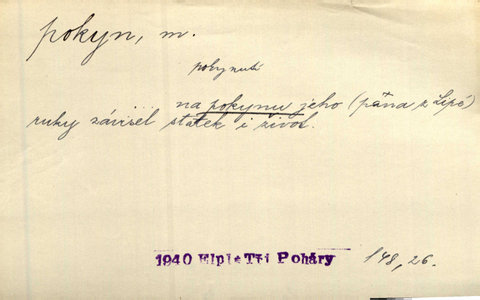 pokyn, m.
pokynutí
na pokynu jeho (pána z Lipé)
ruky závisel statek i život.
1940 Elpl: Tři Poháry 148, 26.